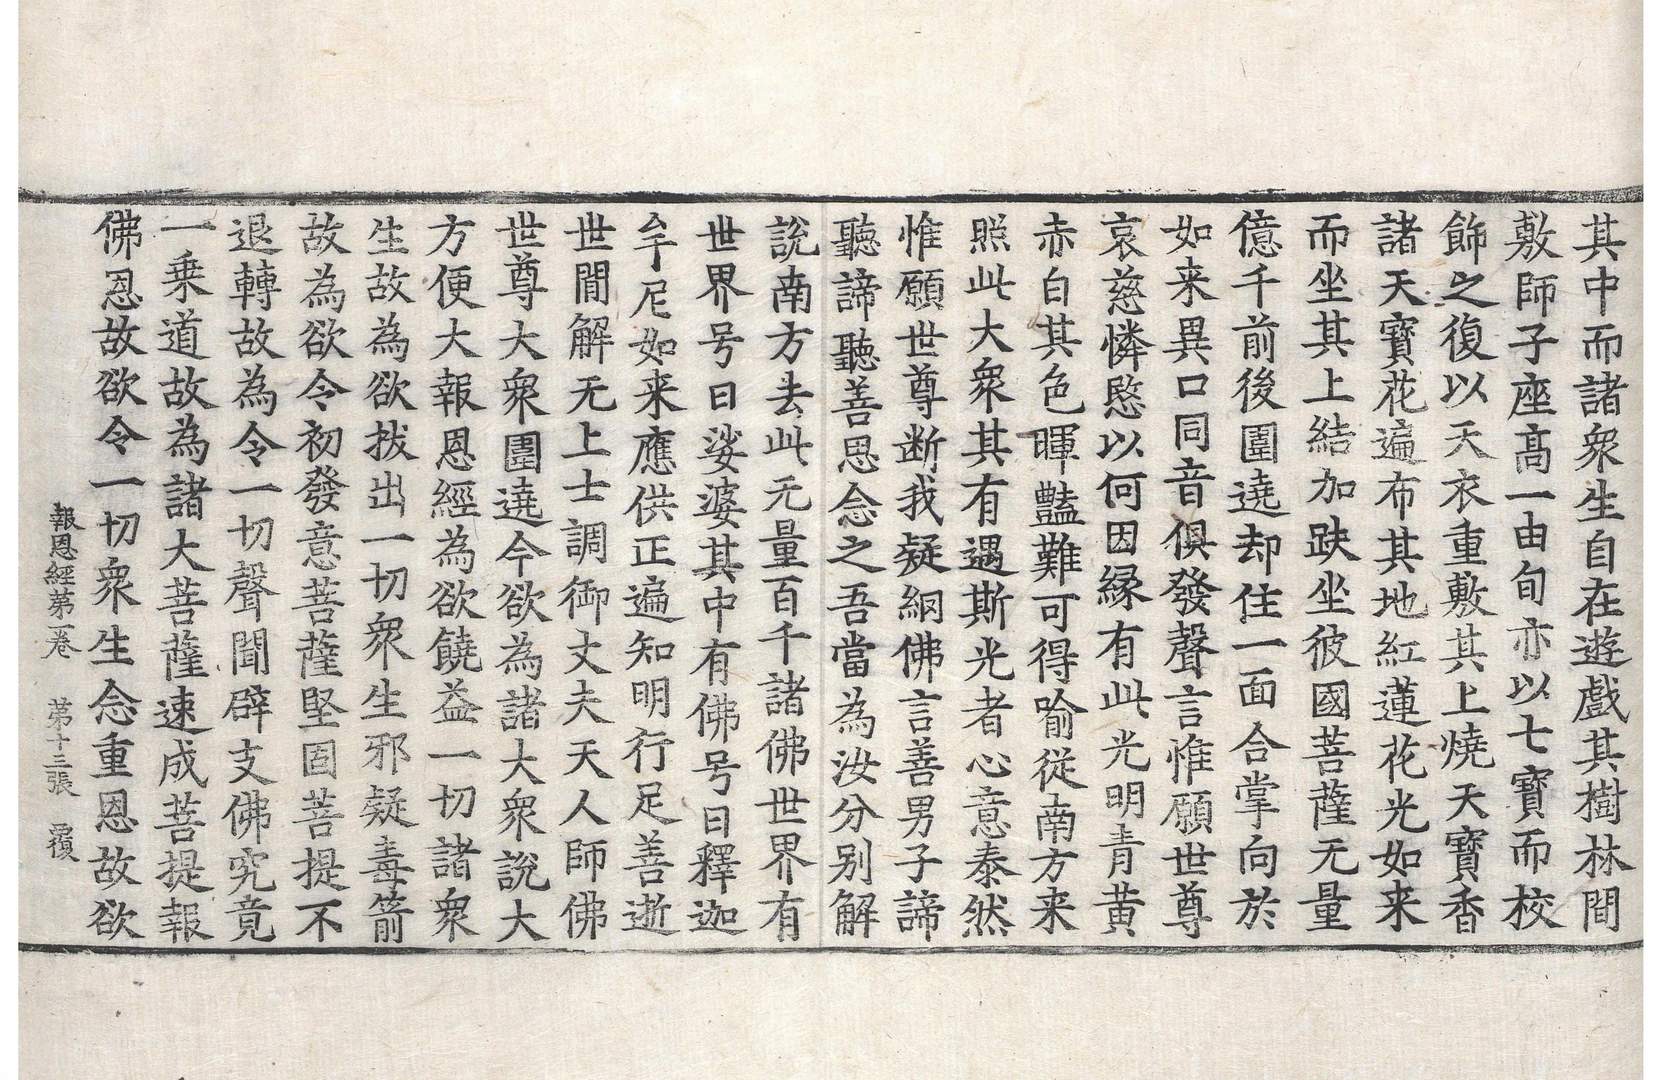 其中而諸衆生自在遊戲其樹林間
敷師子座高一由旬亦以七寶而校
飾之復以天衣重敷其上燒天寶香
諸天寶花遍布其地紅蓮花光如来
而坐其上結加趺坐彼國菩薩无量
億千前後圍遶却住一面合掌向於
如来異口同音俱發聲言惟願世尊
哀慈憐愍以何因縁有此光明青黄
赤白其色暉豔難可得喻從南方来
照此大衆其有遇斯光者心意泰然
惟願世尊断我疑網佛言善男子諦
聽諦聽善思念之吾當為汝分别解
說南方去此无量百千諸佛世界有
世界号曰娑婆其中有佛号曰釋迦
牟尼如来應供正遍知明行足善逝
世間解无上士調御丈夫天人師佛
世尊大衆圍遶今欲為諸大衆說大
方便大報恩經為欲饒益一切諸衆
生故為欲拔出一切衆生邪疑毒箭
故為欲令初發意菩薩堅固菩提不
退轉故為令一切聲聞辟支佛究竟
一乗道故為諸大菩薩速成菩提報
佛恩故欲令一切衆生念重恩故欲
報恩經第一卷 第十三張 覆